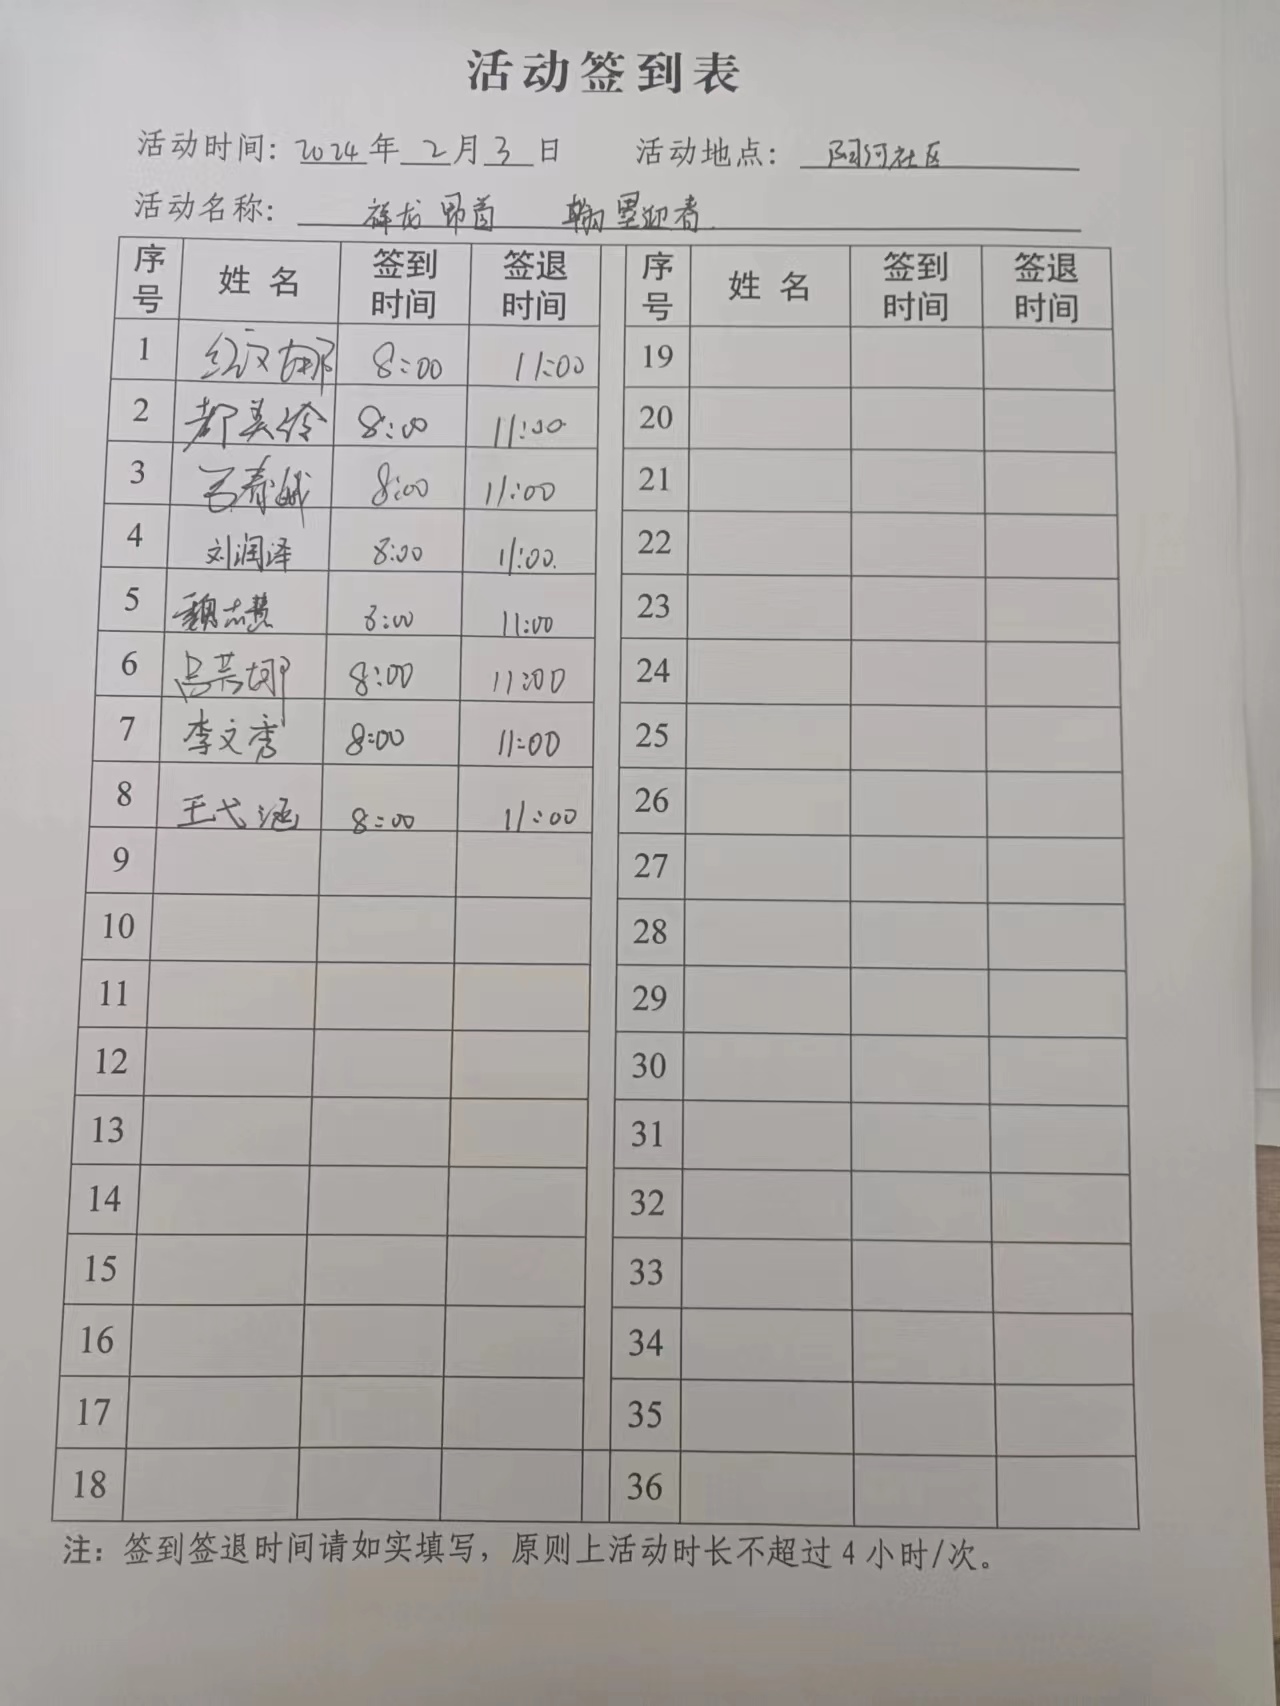 活动签到表
活动时间：2024年 2月3日 活动地点：阿河社区
活动名称：祥龙昂首 翰墨迎春
序号 姓名 签到时间 签退时间 序号 姓名 签到时间 签退时间
1 8:00 11:00 19
2 郝美玲 8:00 11:00 20
3 8:00 11:00 21
4 刘润泽 8:00 11:00. 22
5 魏志慧 8:00 11:00 23
6 8:00 11:00 24
7 李文秀 8:00 11:00 25
8 王弋涵 8:00 11:00 26
9 27
10 28
11 29
12 30
13 31
14 32
15 33
16 34
17 35
18 36
注：签到签退时间请如实填写，原则上活动时长不超过4小时/次。